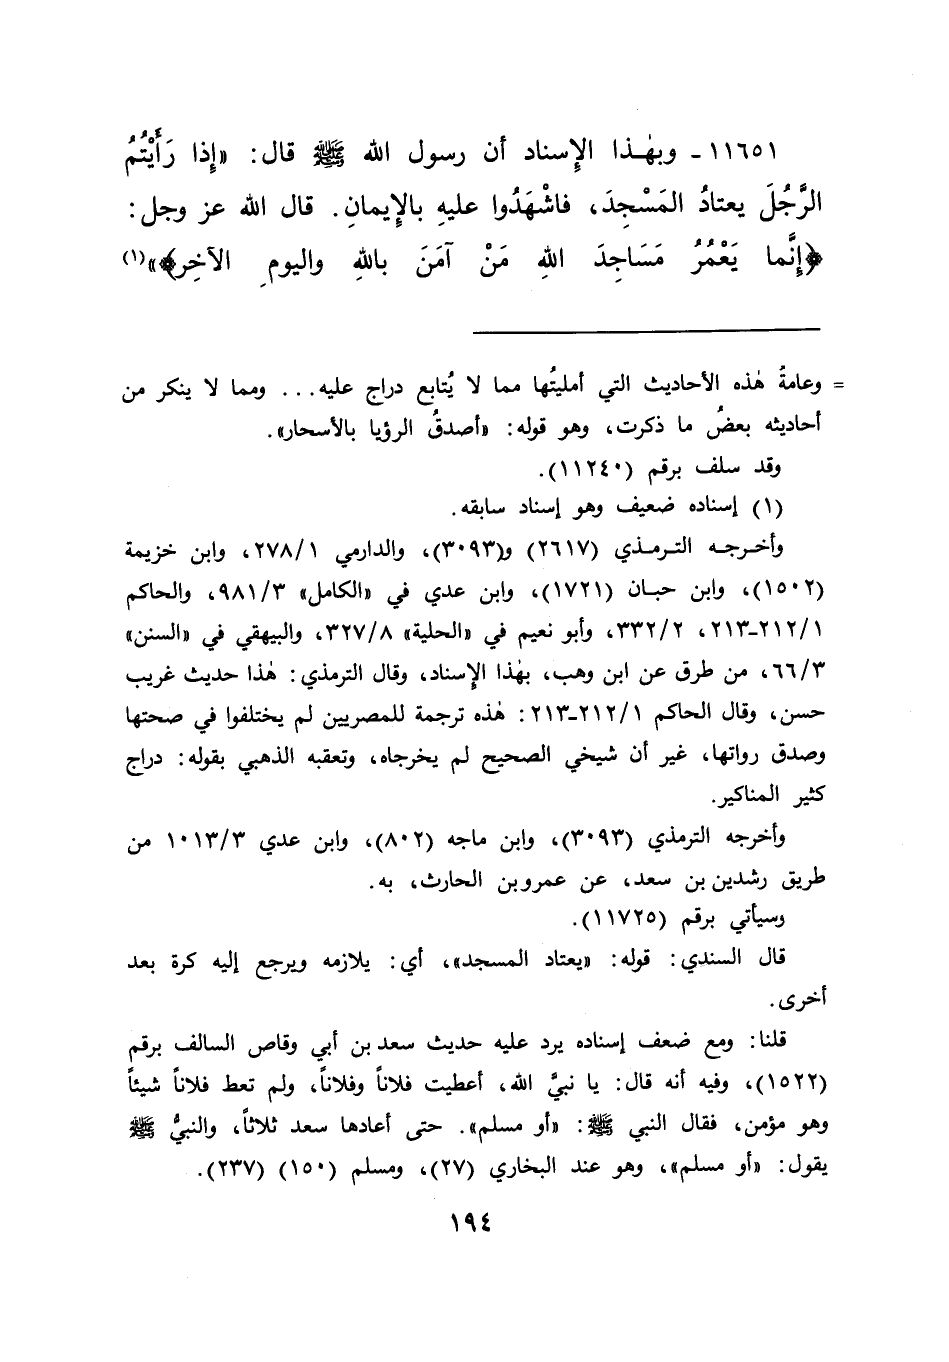 ١١٦٥١ - وبهٰذا الإسناد أن رسول الله ﷺ قال: «إِذا رَأَيْتُمُ
الرَّجُلَ يعتادُ المَسْجِدَ، فاشْهَدُوا عليهِ بالإيمانِ. قال الله عز وجل:
﴿إنَّما يَعْمُرُ مَسَاجِدَ اللهِ مَنْ آمَنَ باللهِ واليومِ الآخِرِ﴾»(١)
= وعامةُ هٰذه الأحاديث التي أمليتُها مما لا يُتابع دراج عليه... ومما لا ينكر من
أحاديثه بعضُ ما ذكرت، وهو قوله: «أصدقُ الرؤيا بالأسحار».
وقد سلف برقم (١١٢٤٠).
(١) إسناده ضعيف وهو إسناد سابقه.
وأخرجه الترمذي (٢٦١٧) و(٣٠٩٣)، والدارمي ٢٧٨/١، وابن خزيمة
(١٥٠٢)، وابن حبان (١٧٢١)، وابن عدي في «الكامل» ٩٨١/٣، والحاكم
٢١٢/١-٢١٣، ٣٣٢/٢، وأبو نعيم في «الحلية» ٣٢٧/٨، والبيهقي في «السنن»
٦٦/٣، من طرق عن ابن وهب، بهٰذا الإسناد، وقال الترمذي: هٰذا حديث غريب
حسن، وقال الحاكم ٢١٢/١-٢١٣: هٰذه ترجمة للمصريين لم يختلفوا في صحتها
وصدق رواتها، غير أن شيخي الصحيح لم يخرجاه، وتعقبه الذهبي بقوله: دراج
كثير المناكير.
وأخرجه الترمذي (٣٠٩٣)، وابن ماجه (٨٠٢)، وابن عدي ١٠١٣/٣ من
طريق رشدين بن سعد، عن عمرو بن الحارث، به.
وسيأتي برقم (١١٧٢٥).
قال السندي: قوله: «يعتاد المسجد»، أي: يلازمه ويرجع إليه كرة بعد
أخرى.
قلنا: ومع ضعف إسناده يرد عليه حديث سعد بن أبي وقاص السالف برقم
(١٥٢٢)، وفيه أنه قال: يا نبيَّ الله، أعطيت فلاناً وفلاناً، ولم تعط فلاناً شيئاً
وهو مؤمن، فقال النبي ﷺ: «أو مسلم». حتى أعادها سعد ثلاثاً، والنبيُّ ﷺ
يقول: «أو مسلم»، وهو عند البخاري (٢٧)، ومسلم (١٥٠) (٢٣٧).
١٩٤